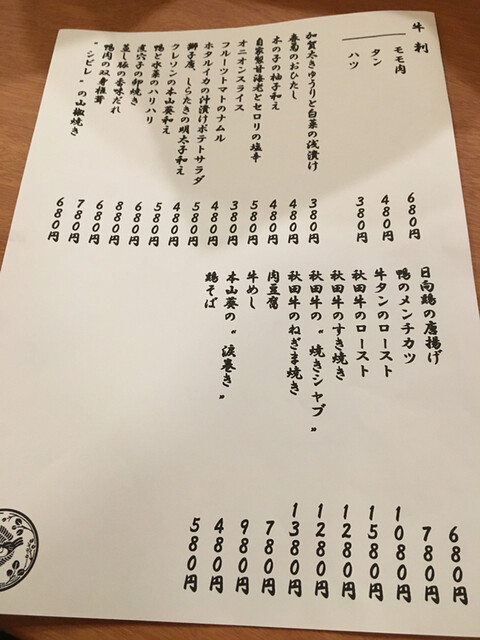 牛刺
モモ肉 680円
タン 480円
ハツ 380円
加賀太きゅうりと白菜の浅漬け 380円
春菊のおひたし 480円
木の子の柚子和え 480円
自家製甘海老とセロリの塩辛 580円
オニオンスライス 380円
フルーツトマトのナムル 480円
ホタルイカの汁漬けポテトサラダ 580円
獅子唐、しらたきの明太子和え 480円
クレソンの本山葵和え 580円
鴨と水菜のハリハリ 680円
煮穴子の卵焼き 880円
蒸し豚の香味だれ 680円
鴨肉の双身椎茸 780円
"シビレ"の山椒焼き 680円
日向鶏の唐揚げ 680円
鴨のメンチカツ 780円
牛タンのロースト 1080円
秋田牛のロースト 1580円
秋田牛のすき焼き 1280円
秋田牛の"焼きシャブ" 1280円
秋田牛のねぎま焼き 1380円
肉豆腐 780円
牛めし 980円
本山葵の"涙巻き" 480円
鶏そば 580円